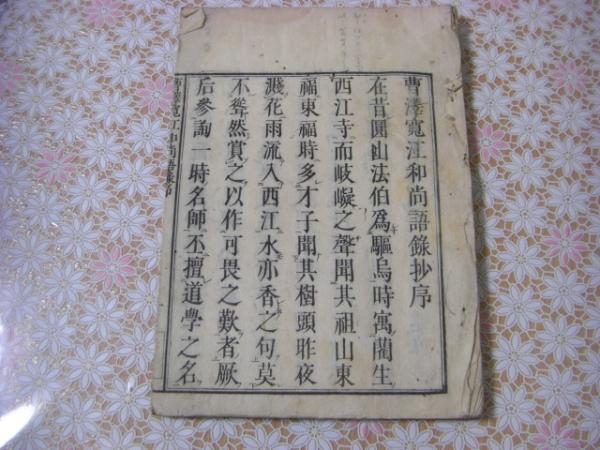 曹溪寬江和尚語錄抄序
在昔圓山法伯爲驅烏時寓藺生
西江寺而岐嶷之聲聞其祖山東
福東福時多才子聞其樹頭昨夜
濺花雨流入西江水亦香之句莫
不聳然賞之以作可畏之歎者厥
后參詢一時名師丕擅道學之名